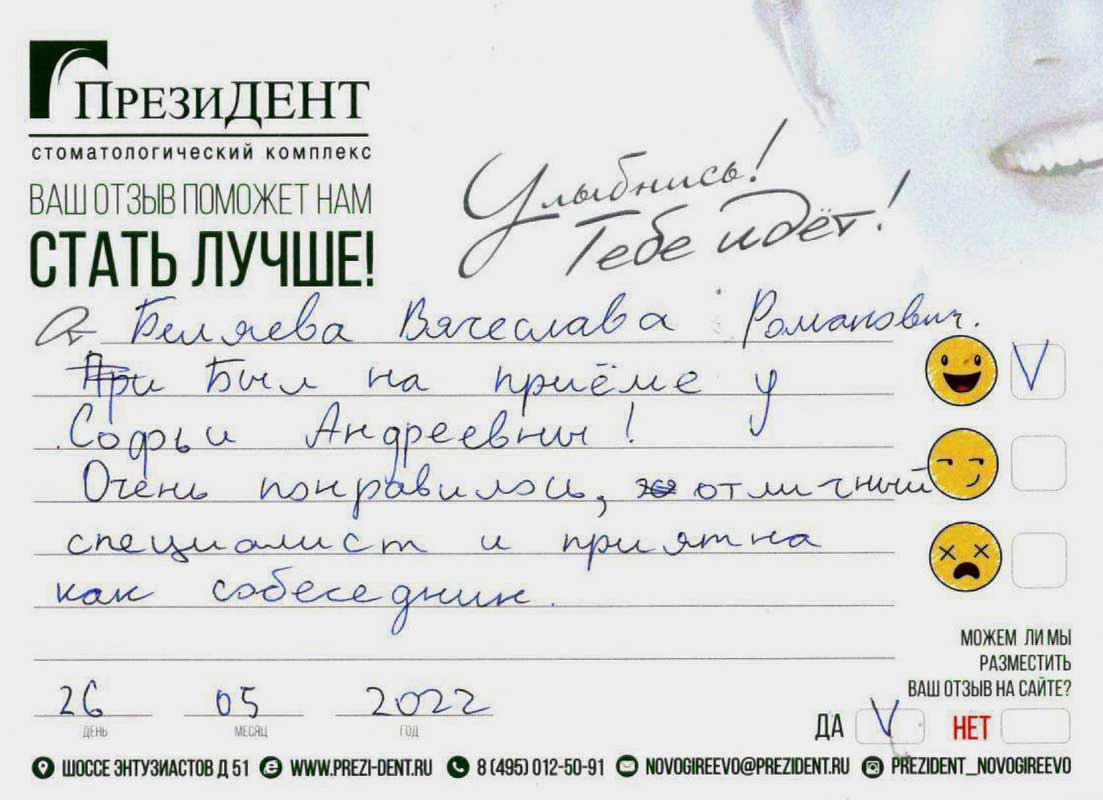 ПрезиДЕНТ
стоматологический комплекс
ВАШ ОТЗЫВ ПОМОЖЕТ НАМ
СТАТЬ ЛУЧШЕ!
Улыбнись!
Тебе идёт!
От Беляева Вячеслава Романович.
При Был на приёме у
Софьи Андреевны!
Очень понравилось, отличный
специалист и приятна
как собеседник.
26 05 2022
ДЕНЬ МЕСЯЦ ГОД
МОЖЕМ ЛИ МЫ
РАЗМЕСТИТЬ
ВАШ ОТЗЫВ НА САЙТЕ?
ДА V НЕТ
ШОССЕ ЭНТУЗИАСТОВ Д 51 WWW.PREZI-DENT.RU 8 (495) 012-50-91 NOVOGIREEVO@PREZIDENT.RU PREZIDENT_NOVOGIREEVO